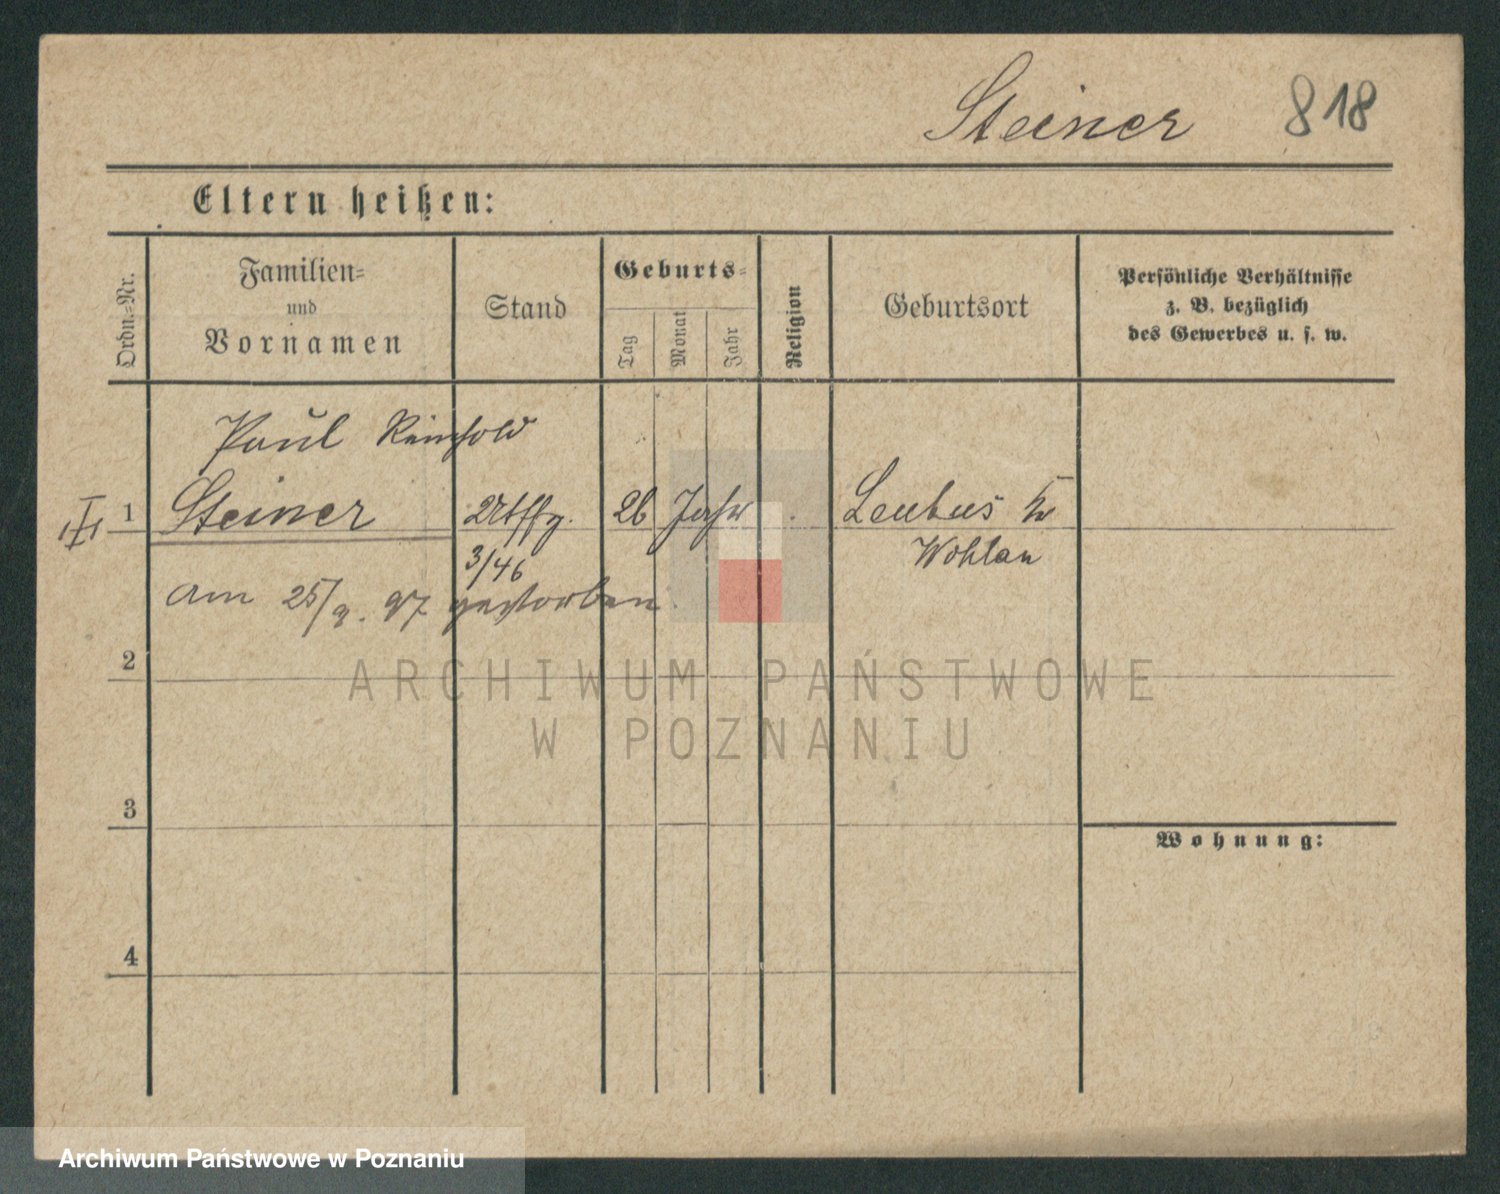 Steiner 818
Eltern heißen:
Ordn.-Nr.
Familien-
und
Vornamen
Stand
Geburts-
Tag
Monat
Jahr
Religion
Geburtsort
Persönliche Verhältnisse
z. B. bezüglich
des Gewerbes u. s. w.
Paul Reinhold
1 Steiner Utffz. 26 Jahr Leubus Kr
3/46 Wohlau
am 25/9. 97 gestorben.
2
ARCHIWUM PAŃSTWOWE
W POZNANIU
3
Wohnung:
4
Archiwum Państwowe w Poznaniu